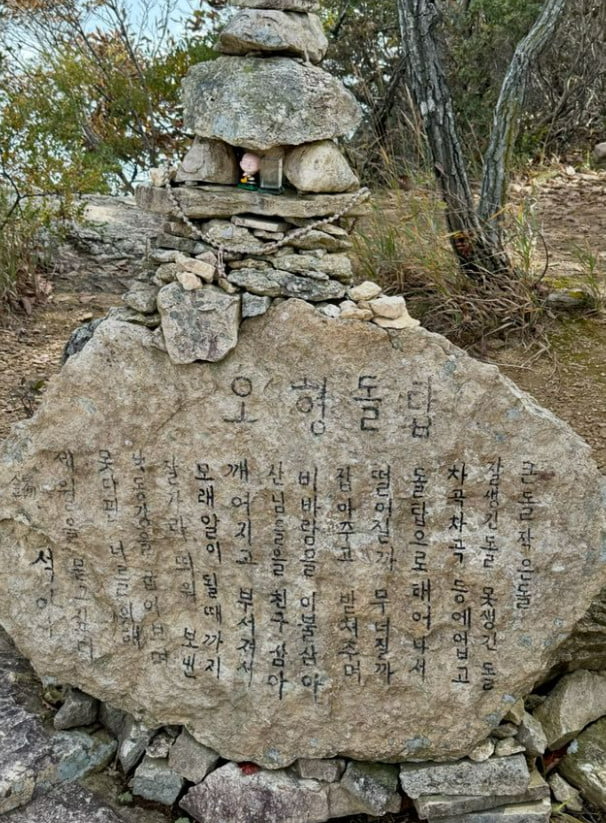 오형돌탑
큰돌작은돌
잘생긴돌 못생긴 돌
차곡차곡 등에업고
돌탑으로태어나서
떨어질까 무너질까
잡아주고 받쳐주며
비바람을 이불삼아
산님들을 친구 삼아
깨여지고 부서져서
모래알이 될때까지
잘가라 띄워 보낸
낮동강을 품어보며
못다핀 너를위해
세월을 묻고싶다
석아